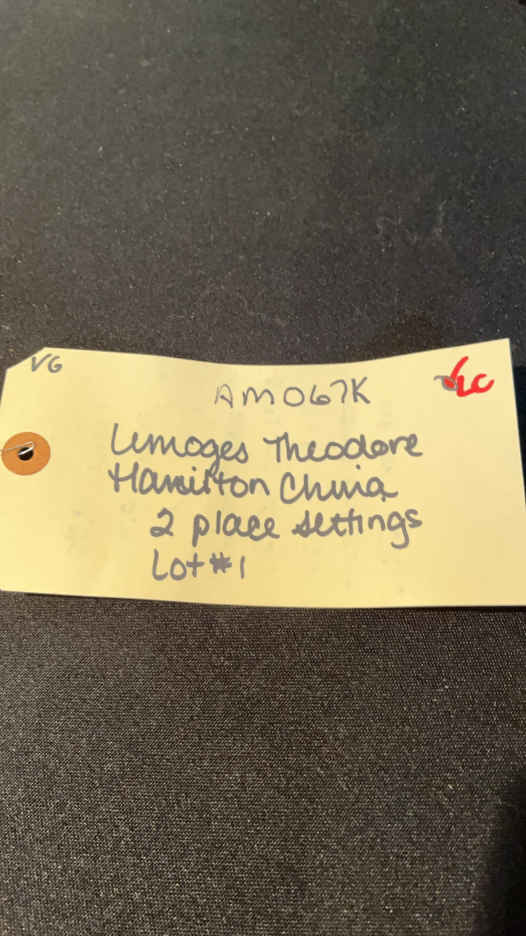 VG
AM067K
LC
Limoges Theodore
Hamilton China
2 place settings
Lot #1